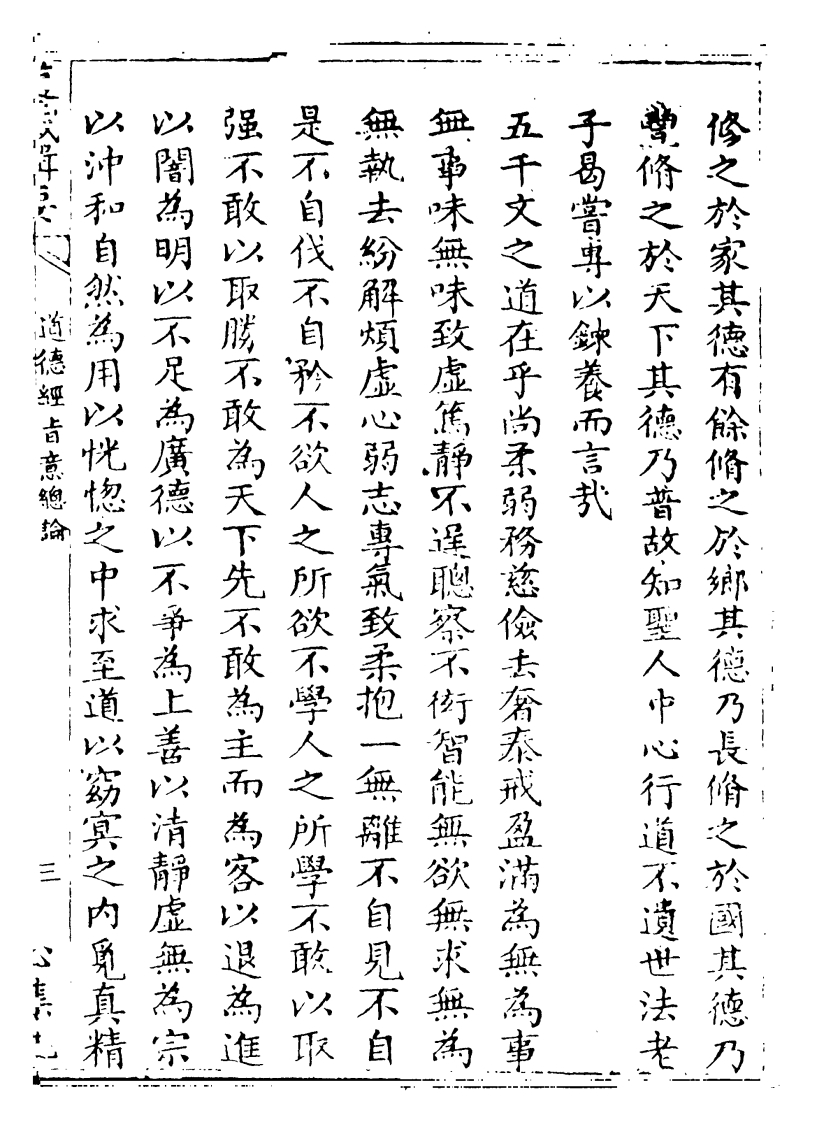 修之於家其德有餘脩之於鄉其德乃長脩之於國其德乃
豐脩之於天下其德乃普故知聖人中心行道不遺世法老
子曷嘗專以鍊養而言哉
五千文之道在乎尚柔弱務慈儉去奢泰戒盈滿為無為事
無事味無味致虛篤靜不逞聰察不衒智能無欲無求無為
無執去紛解煩虛心弱志專氣致柔抱一無離不自見不自
是不自伐不自矜不欲人之所欲不學人之所學不敢以取
强不敢以取勝不敢為天下先不敢為主而為客以退為進
以闇為明以不足為廣德以不爭為上善以清靜虛無為宗
以沖和自然為用以恍惚之中求至道以窈冥之内覓真精
道德經旨意總論
三